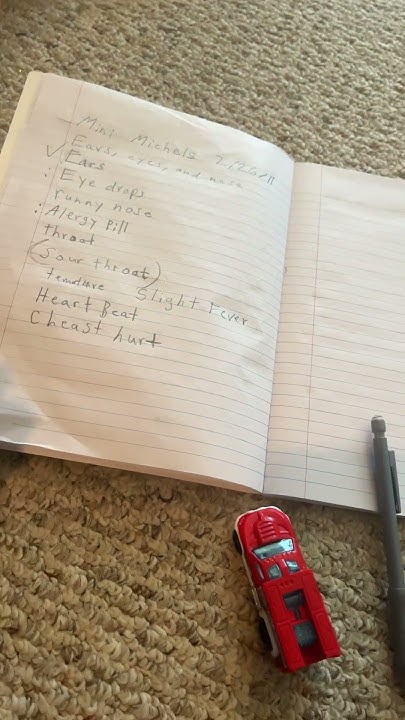 Mini Michels
Ears, eyes, and nose
✓ Ears
: Eye drops
runny nose
: Alergy pill
throat
(Sour throat)
Slight Fever
Heart Beat
Cheast hurt